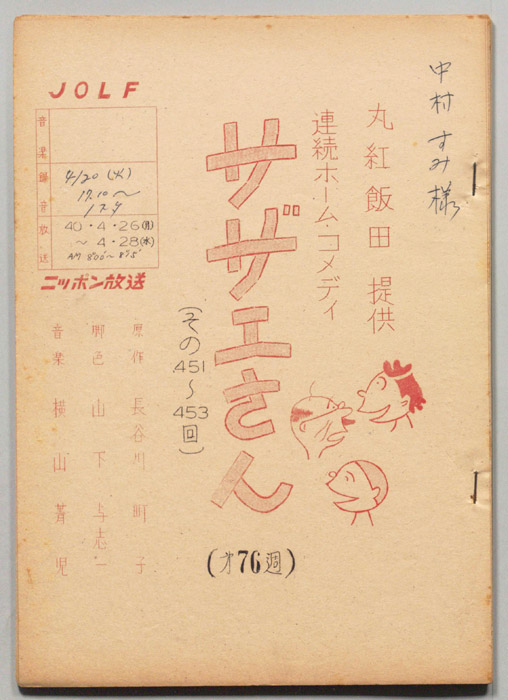 中村すみ様
丸紅飯田 提供
連続ホーム・コメディ
サザエさん
(その451～453回)
(才76週)
JOLF
音楽
録音
4/20(火)
17.10～
放送
40・4・26(月)
～4・28(水)
AM 8°00'～8°15'
ニッポン放送
原作 長谷川町子
脚色 山下与志一
音楽 横山菁児